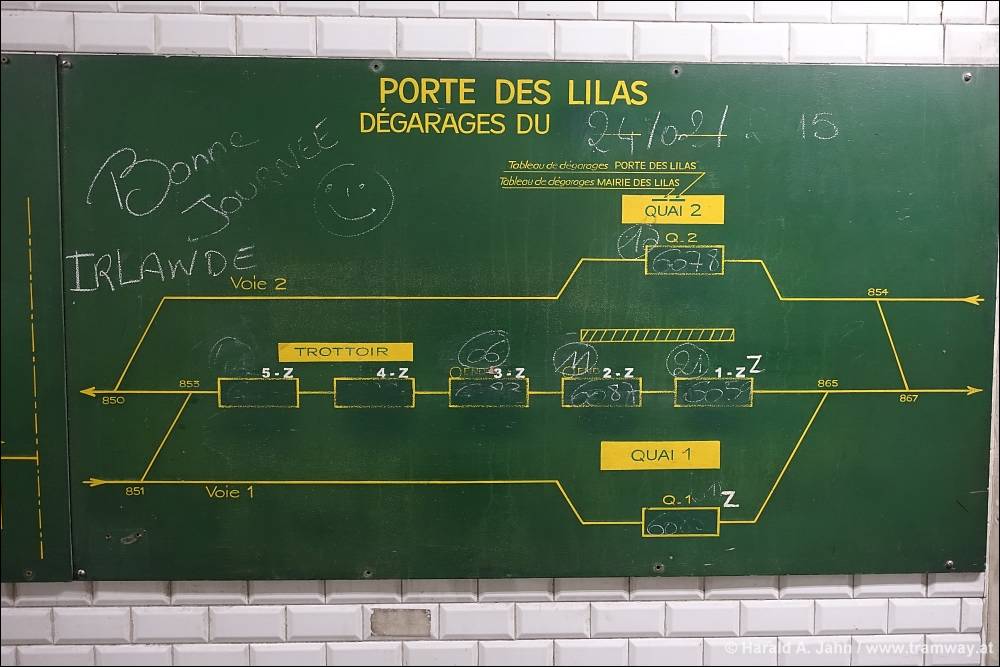 PORTE DES LILAS
DÉGARAGES DU 24/10/21 15
Bonne
JOURNÉE
IRLAWDE
Tableau de dégarages PORTE DES LILAS
Tableau de dégarages MAIRIE DES LILAS
QUAI 2
Q-2
6078
Voie 2
854
TROTTOIR
06
11
21
5-Z 4-Z 3-Z 2-Z 1-Z Z
853
865
850
867
6087
QUAI 1
851
Voie 1
Q-1 Z
© Harald A. Jahn / www.tramway.at